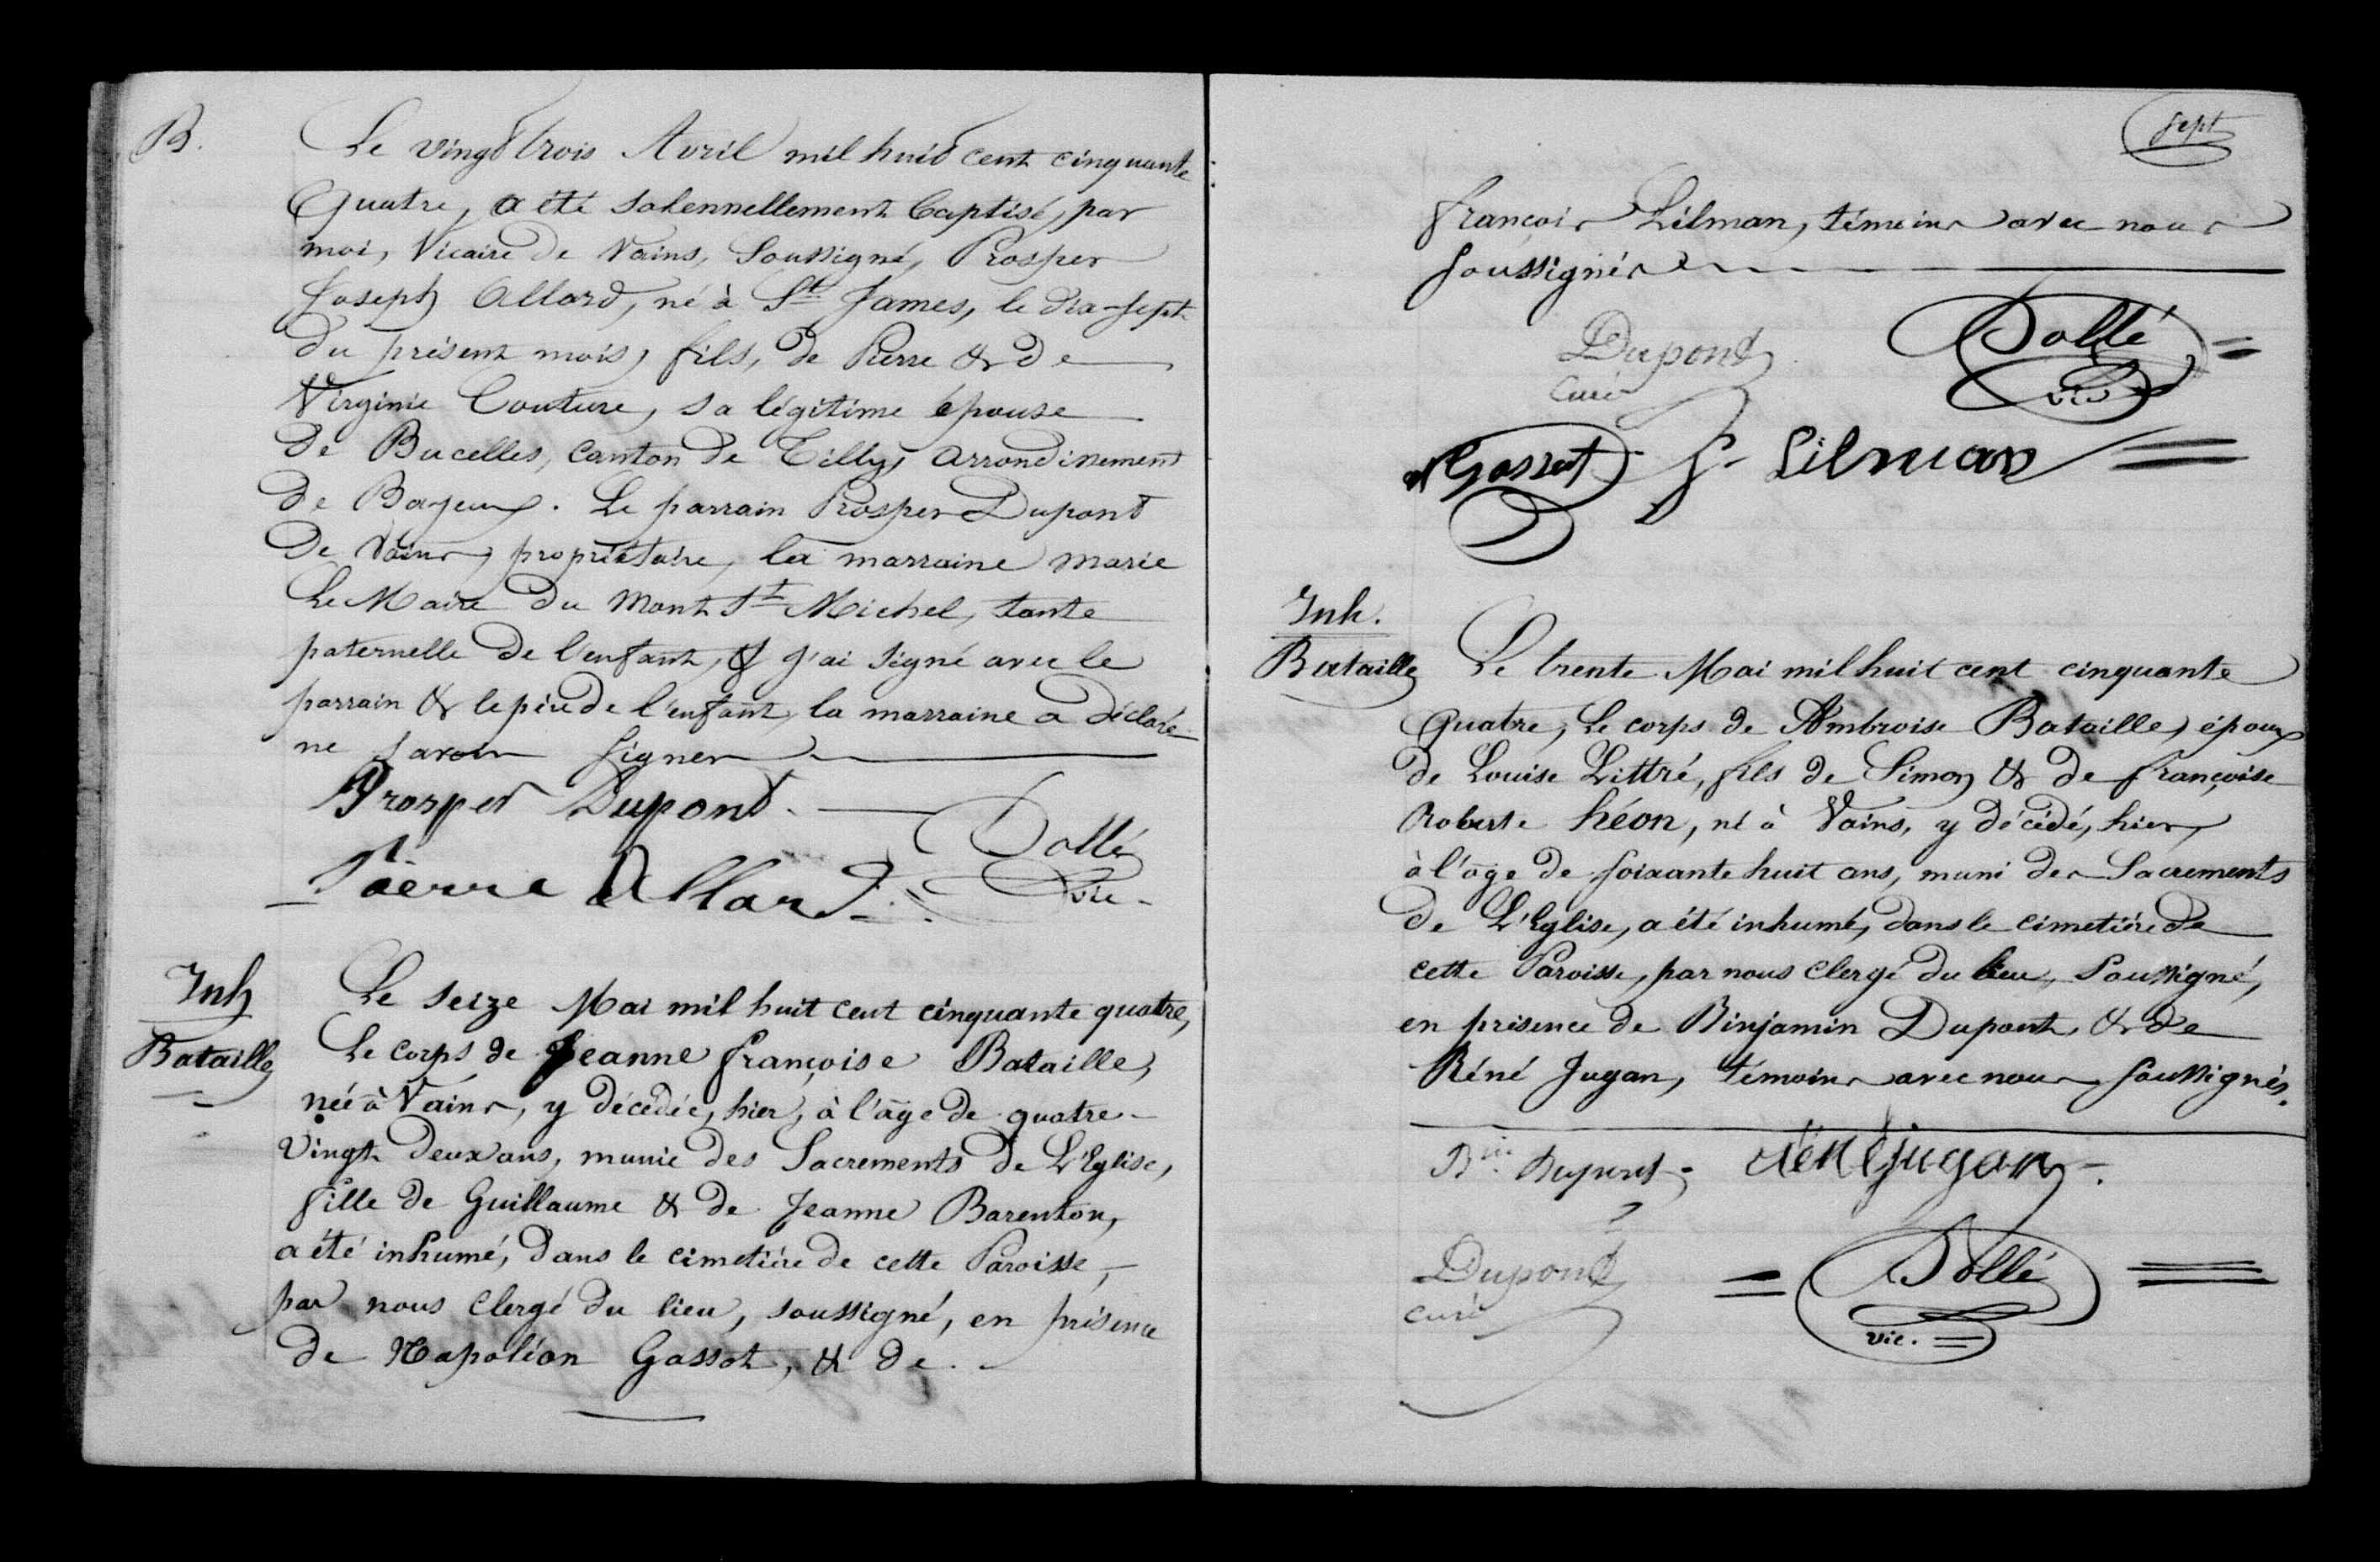 B.
Le vingt trois Avril mil huit cent cinquante
Quatre, a été solennellement baptisé, par
moi, Vicaire de Vains, Soussigné, Prosper
Joseph Allard, né à St James, le dix-sept
du présent mois, fils, de Pierre & de
Virginie Couture, sa légitime épouse
de Bucelles, canton de Tilly, arrondissement
de Bayeux. Le parrain Prosper Dupont
de Vains, propriétaire, la marraine marie
Le Maire du Mont St Michel, tante
paternelle de l'enfant, & j'ai signé avec le
parrain & le père de l'enfant, la marraine a déclaré
ne savoir signer
Prosper Dupont.
Dollé
Pierre Allard
vic.
Inh
Bataille
Le seize Mai mil huit cent cinquante quatre,
Le corps de Jeanne françoise Bataille,
née à Vains, y décédée, hier, à l'âge de quatre-
vingt deux ans, munie des Sacrements de L'Eglise,
fille de Guillaume & de Jeanne Barenton,
a été inhumé, dans le cimetière de cette Paroisse,
par nous clergé du lieu, soussigné, en présence
de Napoléon Gassot, & de
sept
françois Lilman, témoins avec nous
soussignés
Dupont
curé
Dollé
vic
N Gassot
f Lilman
Inh.
Bataille
Le trente Mai mil huit cent cinquante
Quatre, Le corps de Ambroise Bataille, époux
de Louise Littré, fils de Simon & de françoise
Roberte héon, né à Vains, y décédé, hier,
à l'âge de soixante huit ans, muni des Sacrements
de L'Eglise, a été inhumé, dans le cimetière de
cette Paroisse, par nous clergé du lieu, Soussigné,
en présence de Binjamin Dupont, & de
Réné Jugan, témoins avec nous soussignés.
Bin Dupont
Réné jugan
Dupont
curé
Dollé
vic.